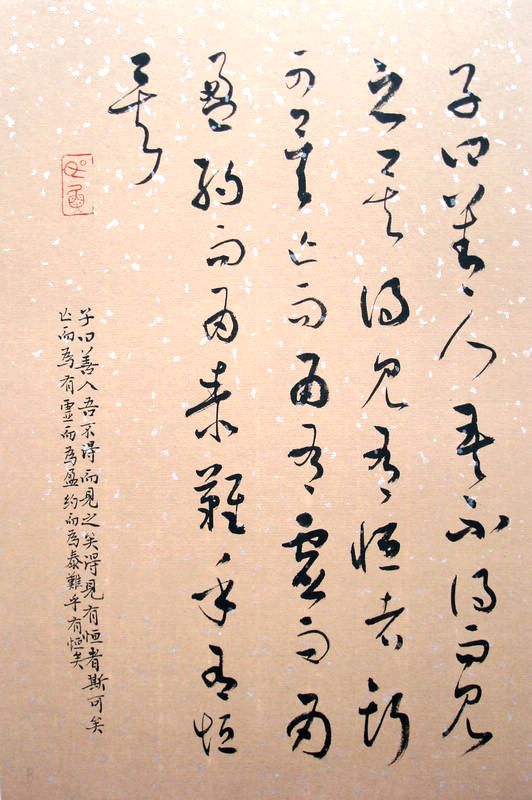 子曰善人吾不得而見
之矣得見有恒者斯
可矣亡而為有虛而為
盈約而為泰難乎有恒
矣
子曰善人吾不得而見之矣得見有恒者斯可矣
亡而為有虛而為盈約而為泰難乎有恒矣